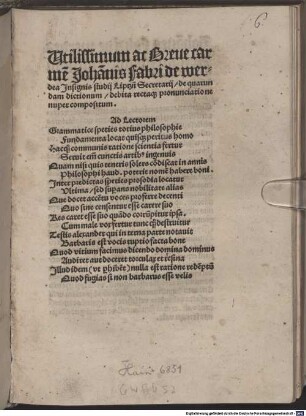 6.
Utilissimum ac Breue car
mē Johānis Fabri de wer
dea Insignis studij Liptzñ Secretarij / de quarun
dam dictionum / debita rectaq; pronunciatione
nuper compositum.
Ad Lectorem
Grammatice species totius philosophie
Fundamenta locat quibus peritus homo
ratione scientia fertur
Seruit cunctis artib9 ingenuis
Quam nisi quis teneris solers didicisset in annis
Philosophi haud poterit nomē habere boni
Inter predictas species prosodia locatur
Vltima / sed supans nobilitate alias
Que docet accētu voces proferre decenti
Quo sine censentur esse carere suo
Vas caret esse suo quādo corrūpitur ipsa
Cum male vox fertur tunc destruitur
Testis alexander qui in tema parte notauit
Barbaris est vocis ruptio facta bone
Quod vitium facimus dicendo domina dominus
Audire aut docere torcular et resina
Illud idem (vt phibēt) nulla est ratione redēptū
Quod fugias si non barbarus esse velis
Hain 6851
GW 9652